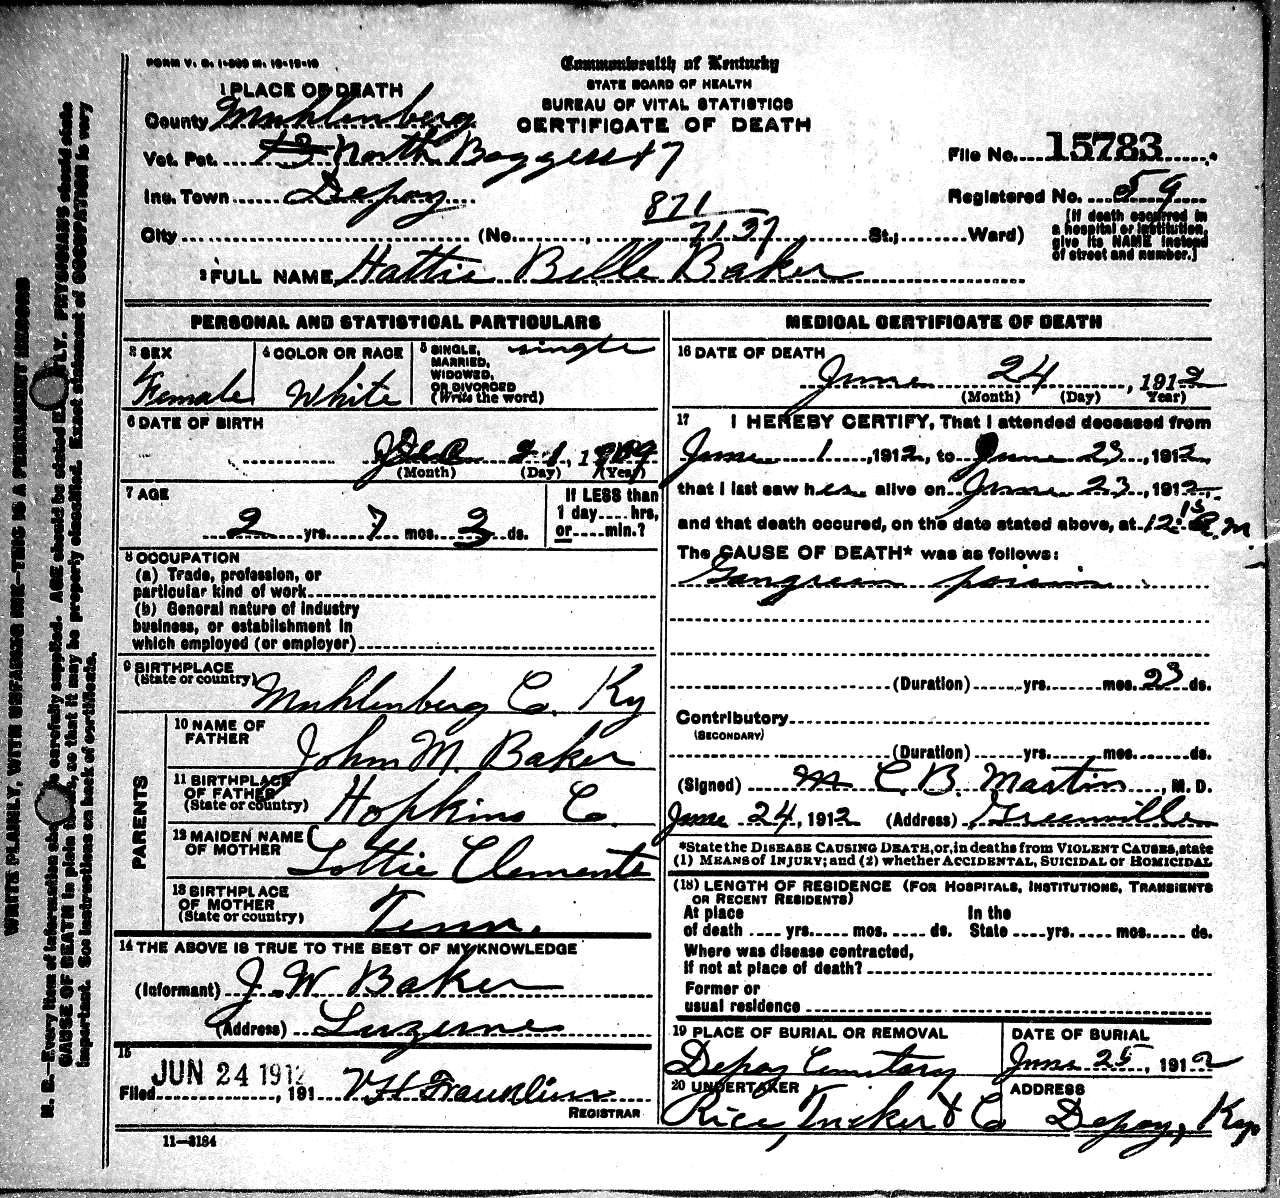 FORM V. S. 1-200 M. 10-15-10
Commonwealth of Kentucky
STATE BOARD OF HEALTH
BUREAU OF VITAL STATISTICS
CERTIFICATE OF DEATH
1 PLACE OF DEATH
County Muhlenberg
Vot. Pct. North Boggess #7
Inc. Town Depoy
City (No. , St.; Ward)
871
7137
File No. 15783
Registered No. 59
[If death occurred in
a hospital or institution,
give its NAME instead
of street and number.]
2 FULL NAME Hattie Belle Baker
PERSONAL AND STATISTICAL PARTICULARS
3 SEX
Female
4 COLOR OR RACE
White
5 SINGLE, MARRIED, WIDOWED, OR DIVORCED (Write the word)
single
6 DATE OF BIRTH
21, 1909
(Month) (Day) (Year)
7 AGE
2 yrs. 7 mos. 3 ds.
If LESS than
1 day.... hrs,
or.....min.?
8 OCCUPATION
(a) Trade, profession, or
particular kind of work
(b) General nature of industry
business, or establishment in
which employed (or employer)
9 BIRTHPLACE
(State or country) Muhlenberg Co. Ky
PARENTS
10 NAME OF FATHER John M. Baker
11 BIRTHPLACE OF FATHER (State or country) Hopkins Co.
12 MAIDEN NAME OF MOTHER Lottie Clements
13 BIRTHPLACE OF MOTHER (State or country) Tenn.
14 THE ABOVE IS TRUE TO THE BEST OF MY KNOWLEDGE
(Informant) J. W Baker
(Address) Luzerne
15
Filed JUN 24 1912, 191 V H Franklin
REGISTRAR
11—3184
MEDICAL CERTIFICATE OF DEATH
16 DATE OF DEATH
June 24, 1912
(Month) (Day) (Year)
17 I HEREBY CERTIFY, That I attended deceased from
June 1, 1912, to June 23, 1912,
that I last saw her alive on June 23, 1912,
and that death occured, on the date stated above, at 12.15 A.m.
The CAUSE OF DEATH* was as follows:
Gangreen poison
(Duration) yrs. mos. 23 ds.
Contributory
(SECONDARY)
(Duration) yrs. mos. ds.
(Signed) C. B. Martin, M. D.
June 24, 1912 (Address) Greenville
*State the DISEASE CAUSING DEATH, or, in deaths from VIOLENT CAUSES, state
(1) MEANS OF INJURY; and (2) whether ACCIDENTAL, SUICIDAL OR HOMICIDAL
(18) LENGTH OF RESIDENCE (FOR HOSPITALS, INSTITUTIONS, TRANSIENTS
OR RECENT RESIDENTS)
At place In the
of death .... yrs. mos. ds. State .... yrs. mos. ds.
Where was disease contracted,
if not at place of death?
Former or
usual residence
19 PLACE OF BURIAL OR REMOVAL
Depoy Cemitary
DATE OF BURIAL
June 25, 1912
20 UNDERTAKER
Rice, Tucker & Co
ADDRESS
Depoy, Ky.
WRITE PLAINLY, WITH UNFADING INK—THIS IS A PERMANENT RECORD
N. B.—Every item of information should be carefully supplied. AGE should be stated EXACTLY. PHYSICIANS should state
CAUSE OF DEATH in plain terms, so that it may be properly classified. Exact statement of OCCUPATION is very
important. See instructions on back of certificate.